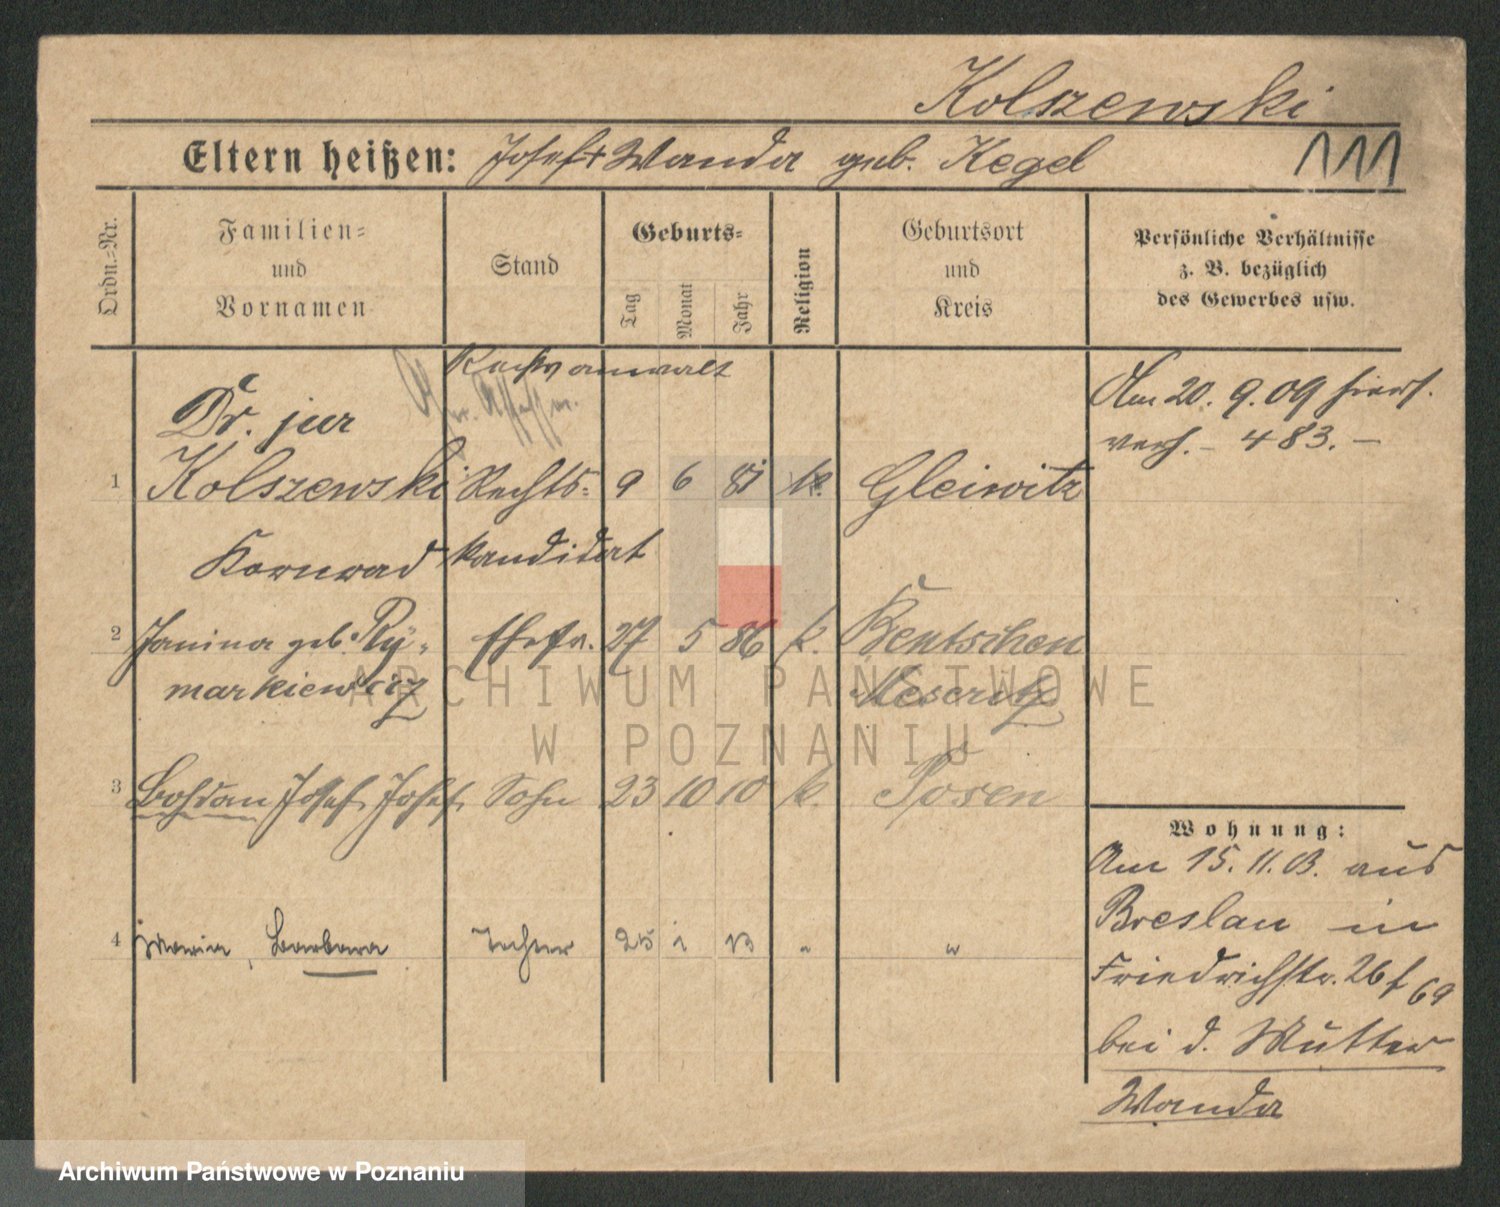 Kolszewski
Eltern heißen: Josef + Wanda geb. Kegel
111
Ordn.-Nr.
Familien-
und
Vornamen
Stand
Geburts-
Tag
Monat
Jahr
Religion
Geburtsort
und
Kreis
Persönliche Verhältnisse
z. B. bezüglich
des Gewerbes usw.
Rechtsanwalt
Dr. jur
1 Kolszewski Rechts- 9 6 81 k. Gleiwitz
Konrad kandidat
Am 20. 9. 09 hiers.
verh. - 483. -
2 Janina geb. Ry- Ehefr. 27 5 86 k. Bentschen
markiewicz Meseritz
3 Bohdan Josef Josef Sohn 23 10 10 k. Posen
4 Maria, Barbara Tochter 25 1 13 " "
Wohnung:
Am 15. 11. 03. aus
Breslau in
Friedrichstr. 26 f 69
bei d. Mutter
Wanda
ARCHIWUM PAŃSTWOWE
W POZNANIU
Archiwum Państwowe w Poznaniu